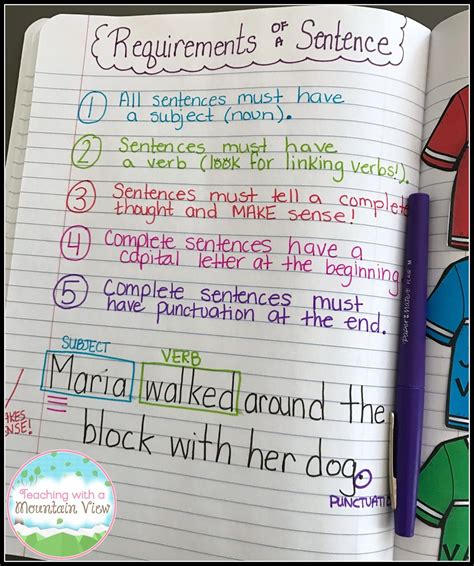 Requirements OF A Sentence
1 All sentences must have
a subject (noun).
2 Sentences must have
a verb (look for linking verbs!).
3 Sentences must tell a complete
thought and MAKE sense!
4 Complete sentences have a
capital letter at the beginning.
5 Complete sentences must
have punctuation at the end.
SUBJECT VERB
Maria walked around the
block with her dog.
PUNCTUATION
Paper Mate
Teaching with a
Mountain View